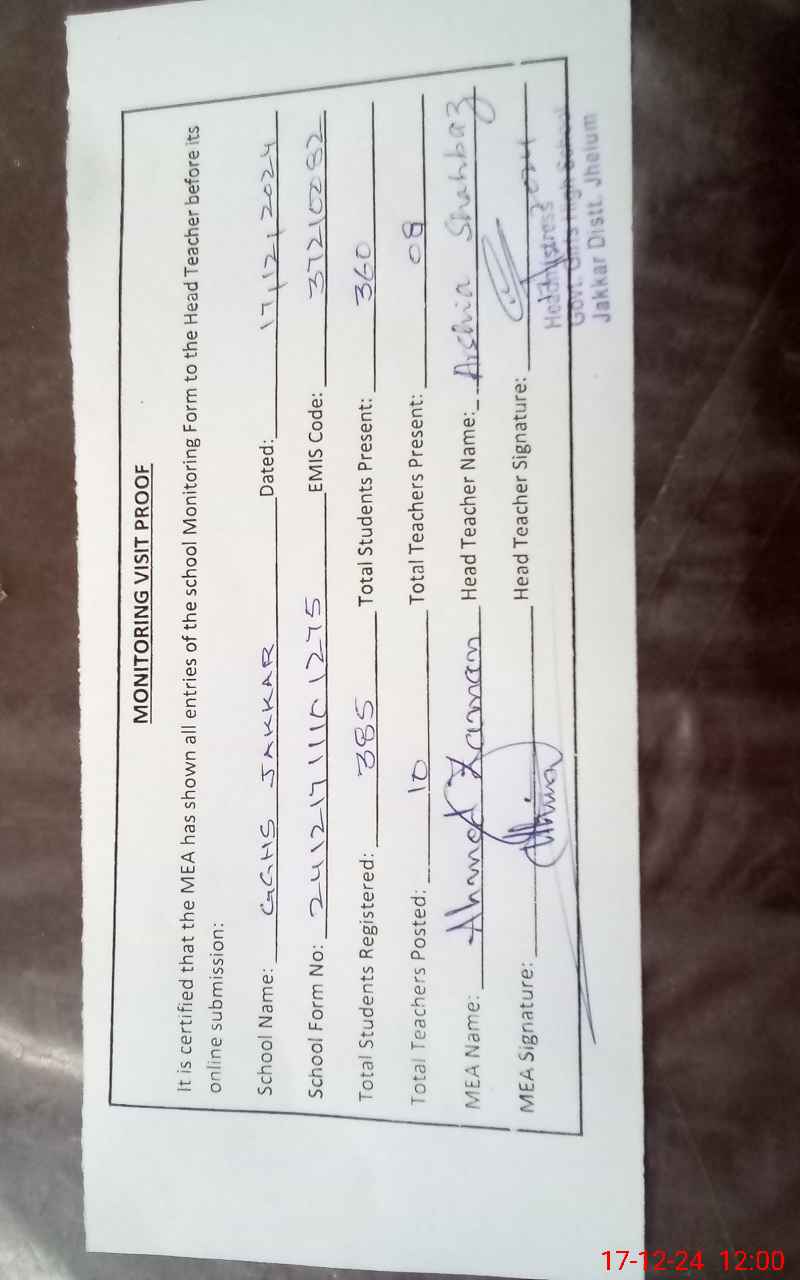 MONITORING VISIT PROOF
It is certified that the MEA has shown all entries of the school Monitoring Form to the Head Teacher before its
online submission:
School Name: GGHS JAKKAR Dated: 17,12,2024
School Form No: 241217111101275 EMIS Code: 37210082
Total Students Registered: 385 Total Students Present: 360
Total Teachers Posted: 10 Total Teachers Present: 08
MEA Name: Ahmed Zaman Head Teacher Name: Arshia Shahbaz
MEA Signature: Head Teacher Signature:
Headmistress
Govt. Girls High School
Jakkar Distt. Jhelum
17-12-24 12:00